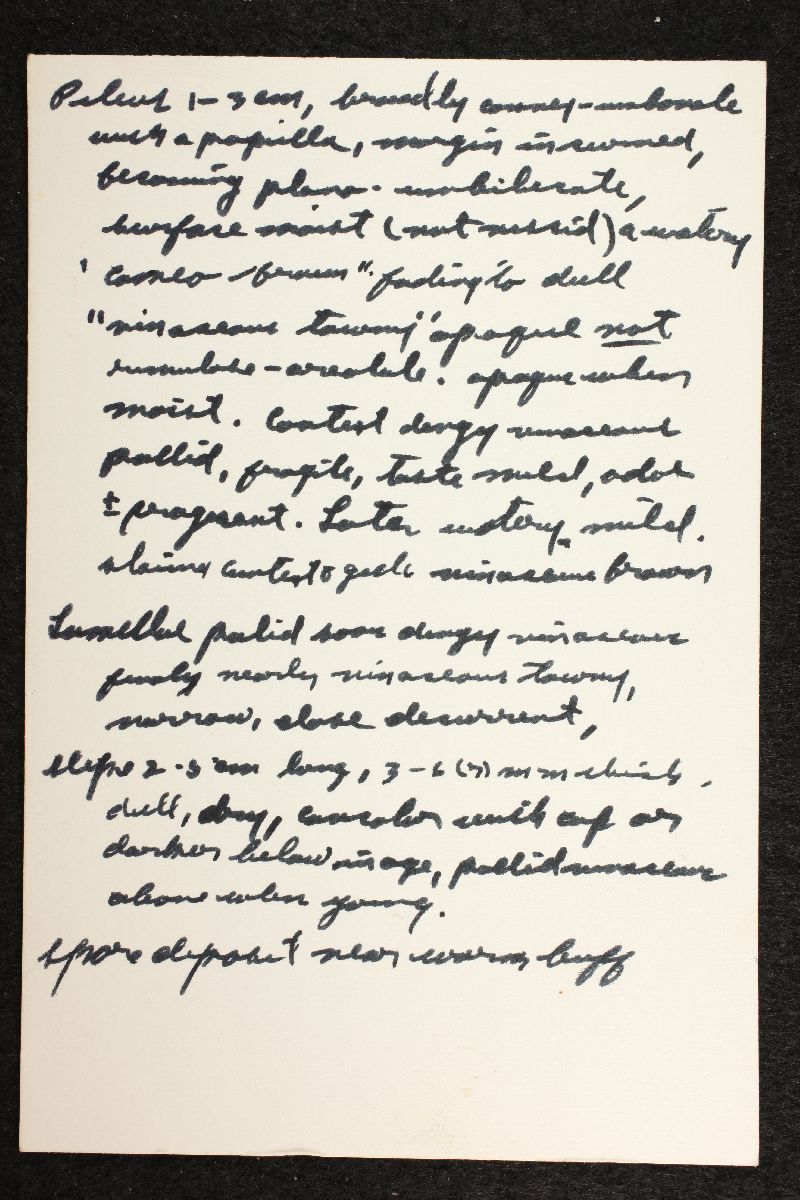 Pileus 1-3 cm, broadly convex-umbonate
with a papilla, margin incurved,
becoming plano-umbilicate,
surface moist (not viscid) a watery
"cameo brown" fading to dull
"vinaceous tawny" opaque not
rimulose-areolate. opaque when
moist. Context dingy vinaceous
pallid, fragile, taste mild, odor
± fragrant. Latex watery, mild.
stains context & gills vinaceous brown
Lamellae palid soon dingy vinaceous
finaly nearly vinaceous tawny,
narrow, close decurrent,
stipe 2-3 cm long, 3-6 (7) mm thick,
dull, dry, concolor with cap or
darker below in age, pallid vinaceous
above when young.
spore deposit near warm buff